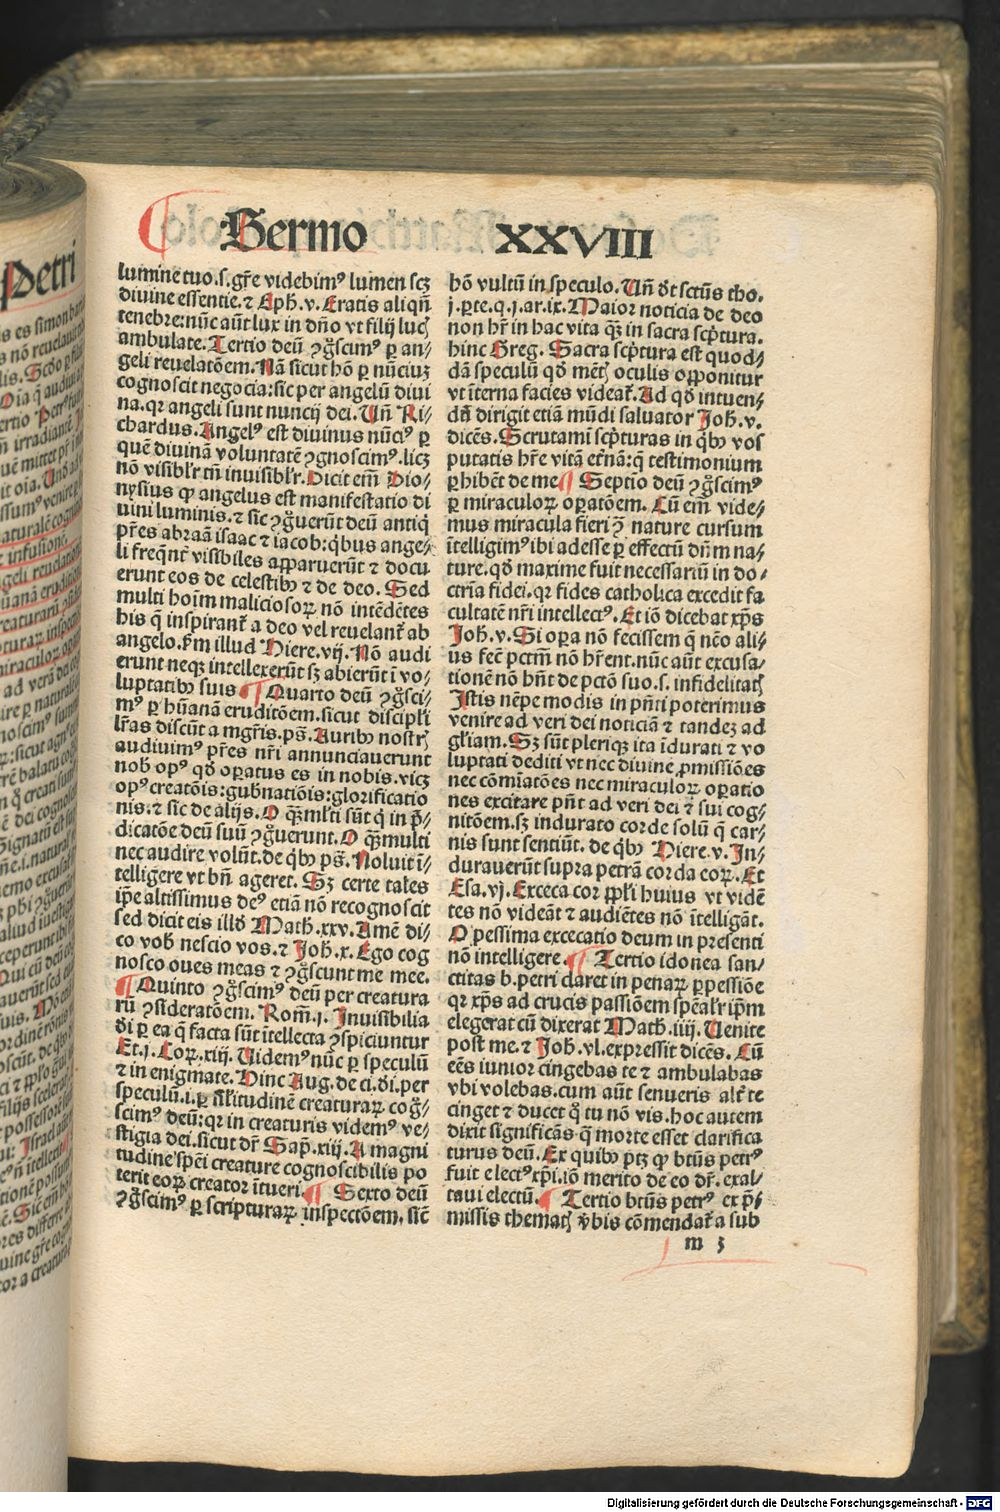 Sermo XXVIII
lumine tuo.s.gr̃e videbimꝰ lumen scꝫ
diuine essentie.⁊ Eph.v. Eratis aliqñ
tenebre:nũc aũt lux in dño vt filij lucꝭ
ambulate. Tertio deũ ꝯgͦscimꝰ ꝑ an⸗
geli reuelatõem. Nã sicut hõ ꝑ nũciuꝫ
cognoscit negocia:sic per angelũ diui
na.qꝛ angeli sunt nuncij dei. Uñ Ri⸗
chardus. Angelꝰ est diuinus nũciꝰ ꝑ
quẽ diuinã voluntatẽ ꝯgnoscimꝰ.licꝫ
nõ visibl'r tñ inuisibl'r. Dicit em̃ Dio⸗
nysius ꝙ angelus est manifestatio di
uini luminis.⁊ sic ꝯgͦuerũt deũ antiq̇
pr̃es abraã isaac ⁊ iacob:qͥbus ange⸗
li freq̃nt̃ visibiles apparuerũt ⁊ docu
erunt eos de celestibꝰ ⁊ de deo. Sed
multi hoim̃ maliciosoꝝ nõ intẽdẽtes
his q̃ inspirant̃ a deo vel reuelant̃ ab
angelo. km̃ illud Hiere.vij. Nõ audi
erunt neqꝫ intellexerũt sꝫ abierũt ĩ vo⸗
luptatibꝰ suis ¶ Quarto deũ ꝯgͦsci⸗
mꝰ ꝑ hũanã eruditõem.sicut discipl'i
lr̃as discũt a mgr̃is.ps̃. Auribꝰ nostrꝭ
audiuimꝰ pr̃es nr̃i annunciauerunt
nob opꝰ qd̾ oꝑatus es in nobis.vicꝫ
opꝰ creatõis:gubnatiõis:glorificatio
nis.⁊ sic de alijs. O qͣꝫ ml'ti sũt qͥ in p̃⸗
dicatõe deũ suũ ꝯgͦuerunt. O qͣꝫ multi
nec audire volũt.de qͥbꝰ ps̃. Noluit ĩ⸗
telligere vt bñ ageret. Sꝫ certe tales
ip̃e altissimus deꝰ etiã nõ recognoscit
sed dicit eis illd̾ Math.xxv. Amẽ di⸗
co vob nescio vos.⁊ Joh.x. Ego cog
nosco oues meas ⁊ ꝯgͦscunt me mee.
¶ Quinto ꝯgͦscimꝰ deũ per creatura
rũ ꝯsideratõem. Rom̃.j. Inuisibilia
d̾i ꝑ ea q̃ facta sũt ĩtellecta ꝯspiciuntur
Et.j. Coꝝ.xiij. Uidemꝰ nũc ꝑ speculũ
⁊ in enigmate. Hinc Aug.de ci.d̾i.per
speculũ.i.ꝑ sil'itudinẽ creaturaꝝ cogͦ⸗
scimꝰ deũ:qꝛ in creaturis videmꝰ ve⸗
stigia dei.sicut dr̃ Sap̃.xiij. A magni
tudine sp̃ei creature cognoscibilis po
terit eoꝝ creator ĩtueri. ¶ Sexto deũ
ꝯgͦscimꝰ ꝑ scripturaꝝ inspectõem.sic̃
hõ vultũ in speculo. Uñ d̾t sctũs tho.
j.ꝑte.q.j.ar.ix. Maior noticia de deo
non hr̃ in hac vita qͣꝫ in sacra scp̃tura.
hinc Greg. Sacra scp̃tura est quod⸗
dã speculũ qd̾ mẽtꝭ oculis opponitur
vt ĩterna facies videat̃. Ad qd̾ intuen⸗
dũ dirigit etiã mũdi saluator Joh.v.
dicẽs. Scrutamĩ scp̃turas in qͥbꝰ vos
putatis hr̃e vitã et̃nã:q̃ testimonium
ꝑhibẽt de me ¶ Septio deũ ꝯgͦscimꝰ
ꝑ miraculoꝝ oꝑatõem. Cũ em̃ vide⸗
mus miracula fieri ꝯ̃ nature cursum
ĩtelligimꝰ ibi adesse ꝑ effectũ dñm na⸗
ture.qd̾ maxime fuit necessariũ in do⸗
ctrĩa fidei.qꝛ fides catholica excedit fa
cultatẽ nr̃i intellectꝰ. Et iõ dicebat xp̃s
Joh.v. Si oꝑa nõ fecissem q̃ nẽo ali⸗
us fec̃ pctm̃ nõ hr̃ent.nũc aũt excusa⸗
tionẽ nõ hñt de pctõ suo.s. infidelitatꝭ
Istis nẽpe modis in pñti poterimus
venire ad veri dei noticiã ⁊ tandeꝫ ad
gl'iam. Sꝫ sũt pleriqꝫ ita ĩdurati ⁊ vo
luptati dediti vt nec diuine ꝓmissiões
nec cõmĩatões nec miraculoꝝ oꝑatio
nes excitare pñt ad veri dei ⁊ sui cog⸗
nitõem.sꝫ indurato corde solũ q̃ car⸗
nis sunt sentiũt. de qͥbꝰ Hiere.v. In⸗
durauerũt supra petrã corda coꝝ. Et
Esa.vj. Exceca cor ppl'i huius vt vidẽ
tes nõ videãt ⁊ audiẽtes nõ ĩtelligãt.
O pessima excecatio deum in presenti
nõ intelligere. ¶ Tertio idonea san⸗
ctitas b.petri claret in penaꝝ ꝑpessiõe
qꝛ xp̃s ad crucis passiõem sp̃eal'r ip̃m
elegerat cũ dixerat Math.iiij. Uenite
post me.⁊ Joh.vl.expressit dicẽs. Cũ
eẽs iunior cingebas te ⁊ ambulabas
vbi volebas.cum aũt senueris alt̃ te
cinget ⁊ ducet qͦ tu nõ vis.hoc autem
dixit significãs q̃ morte esset clarifica
turus deũ. Ex quibꝰ ptꝫ ꝙ btũs petrꝰ
fuit electꝰ xp̃i.iõ merito de eo dr̃. exal⸗
taui electũ. ¶ Tertio btũs petrꝰ ex p̃⸗
missis thematꝭ v̾bis cõmendat̃ a sub
m 3
Digitalisierung gefördert durch die Deutsche Forschungsgemeinschaft - DFG